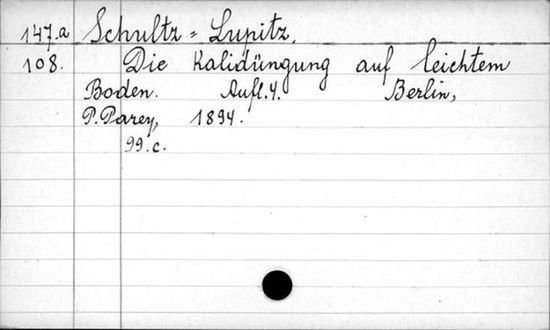 147.a Schultz=Lupitz.
108. Die Kalidüngung auf leichtem
Boden. Aufl.4. Berlin,
P.Parey, 1894.
99.c.